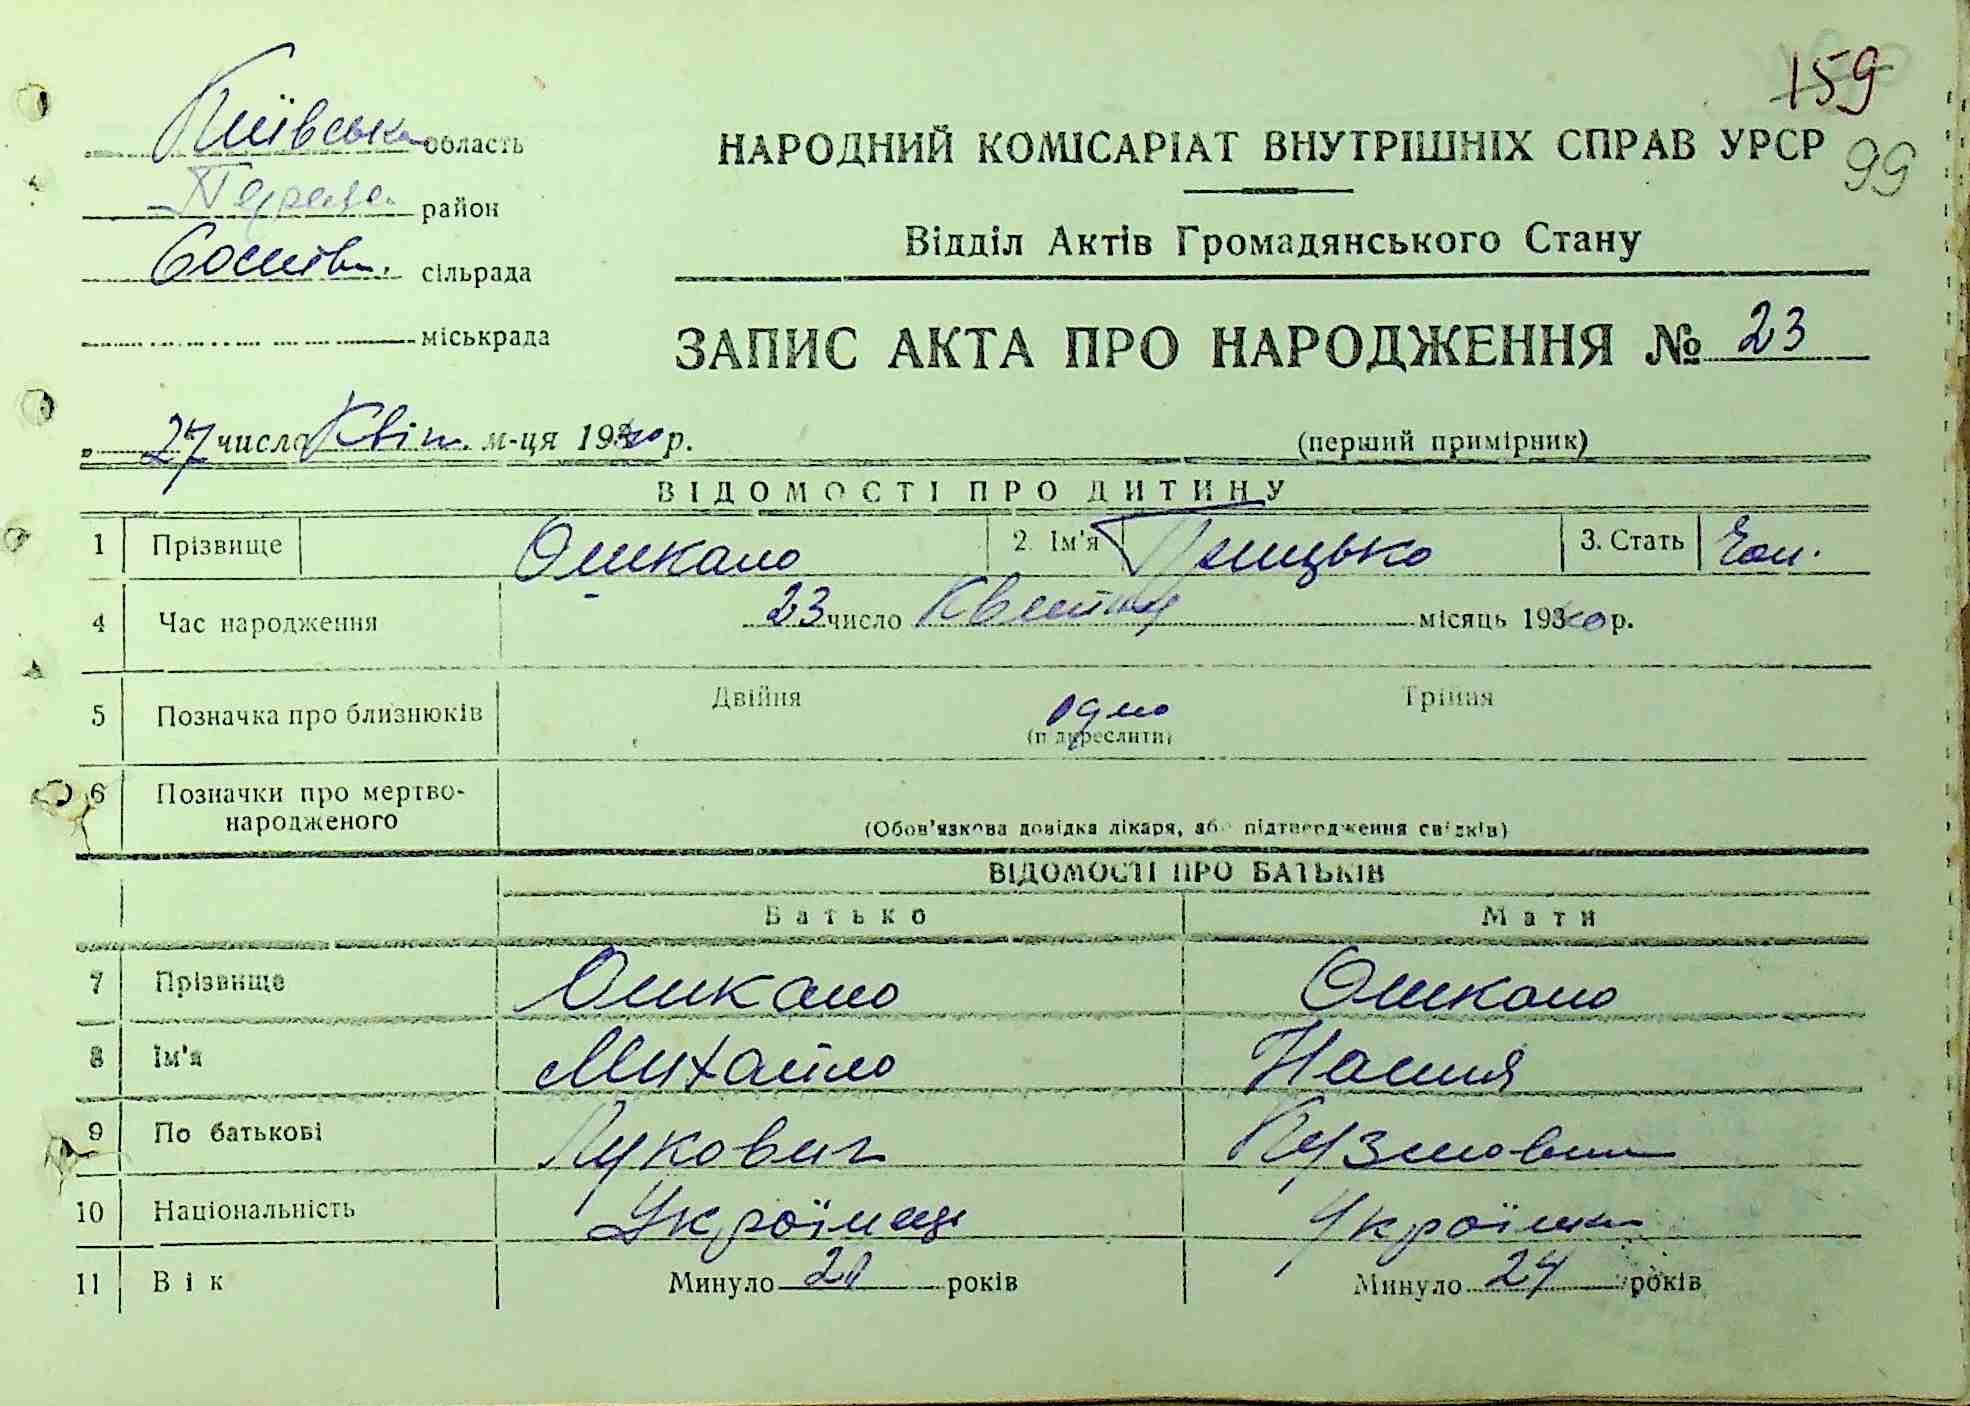 159
99
Київська область
НАРОДНИЙ КОМІСАРІАТ ВНУТРІШНІХ СПРАВ УРСР
район
Відділ Актів Громадянського Стану
сільрада
міськрада
ЗАПИС АКТА ПРО НАРОДЖЕННЯ № 23
„ 27 числа Квіт. м-ця 1940 р.
(перший примірник)
ВІДОМОСТІ ПРО ДИТИНУ
1 Прізвище Ошкало 2. Ім'я Грицько 3. Стать Чол.
4 Час народження 23 число Квітня місяць 1940 р.
5 Позначка про близнюків Двійня одно Трійня
(підкреслити)
6 Позначки про мертво-
народженого
(Обов'язкова довідка лікаря, або підтвердження свідків)
ВІДОМОСТІ ПРО БАТЬКІВ
Батько Мати
7 Прізвище Ошкало Ошкало
8 Ім'я Михайло
9 По батькові Лукович Кузмовна
10 Національність Українець Українка
11 Вік Минуло років Минуло 24 років